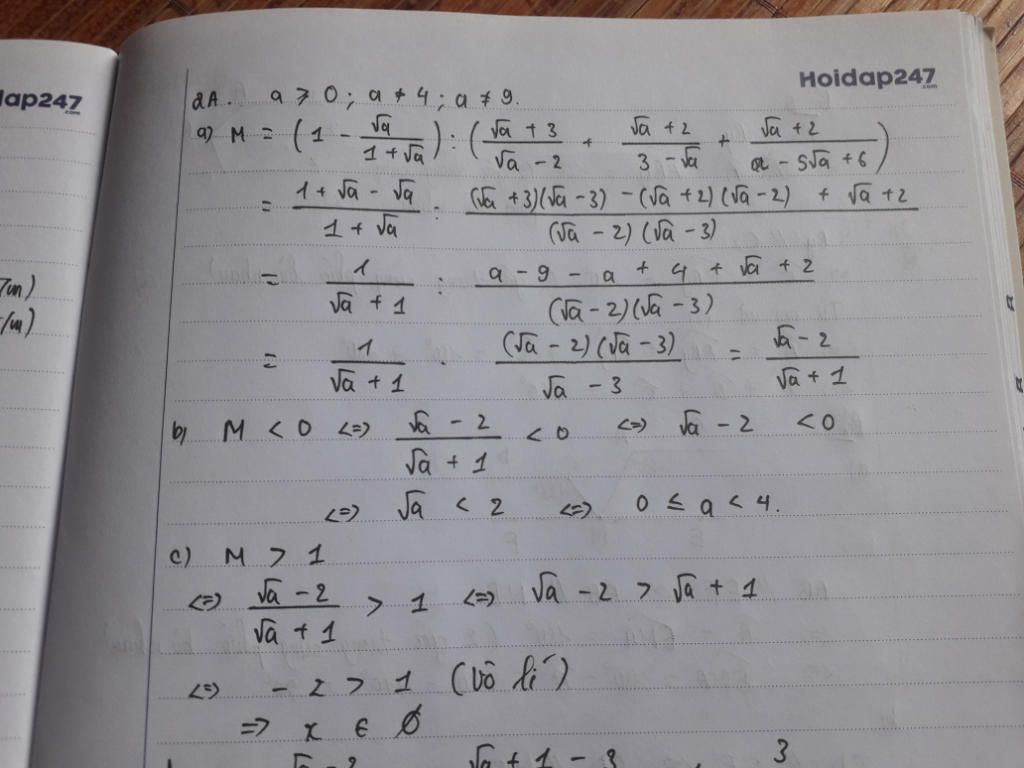 dap247
.com
Hoidap247
.com
2A. a ≥ 0; a ≠ 4; a ≠ 9.
a) M = (1 - √a/(1 + √a)) : ((√a + 3)/(√a - 2) + (√a + 2)/(3 - √a) + (√a + 2)/(a - 5√a + 6))
= (1 + √a - √a)/(1 + √a) : ((√a + 3)(√a - 3) - (√a + 2)(√a - 2) + √a + 2)/((√a - 2)(√a - 3))
= 1/(√a + 1) : (a - 9 - a + 4 + √a + 2)/((√a - 2)(√a - 3))
= 1/(√a + 1) . ((√a - 2)(√a - 3))/(√a - 3) = (√a - 2)/(√a + 1)
b) M < 0 <=> (√a - 2)/(√a + 1) < 0 <=> √a - 2 < 0
<=> √a < 2 <=> 0 ≤ a < 4.
c) M > 1
<=> (√a - 2)/(√a + 1) > 1 <=> √a - 2 > √a + 1
<=> - 2 > 1 (Vô lí)
=> x ∈ ∅
√a + 1 - 3 3